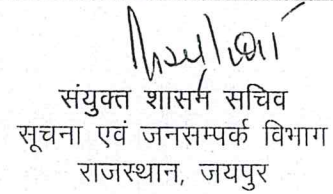 संयुक्त शासन सचिव
सूचना एवं जनसम्पर्क विभाग
राजस्थान, जयपुर